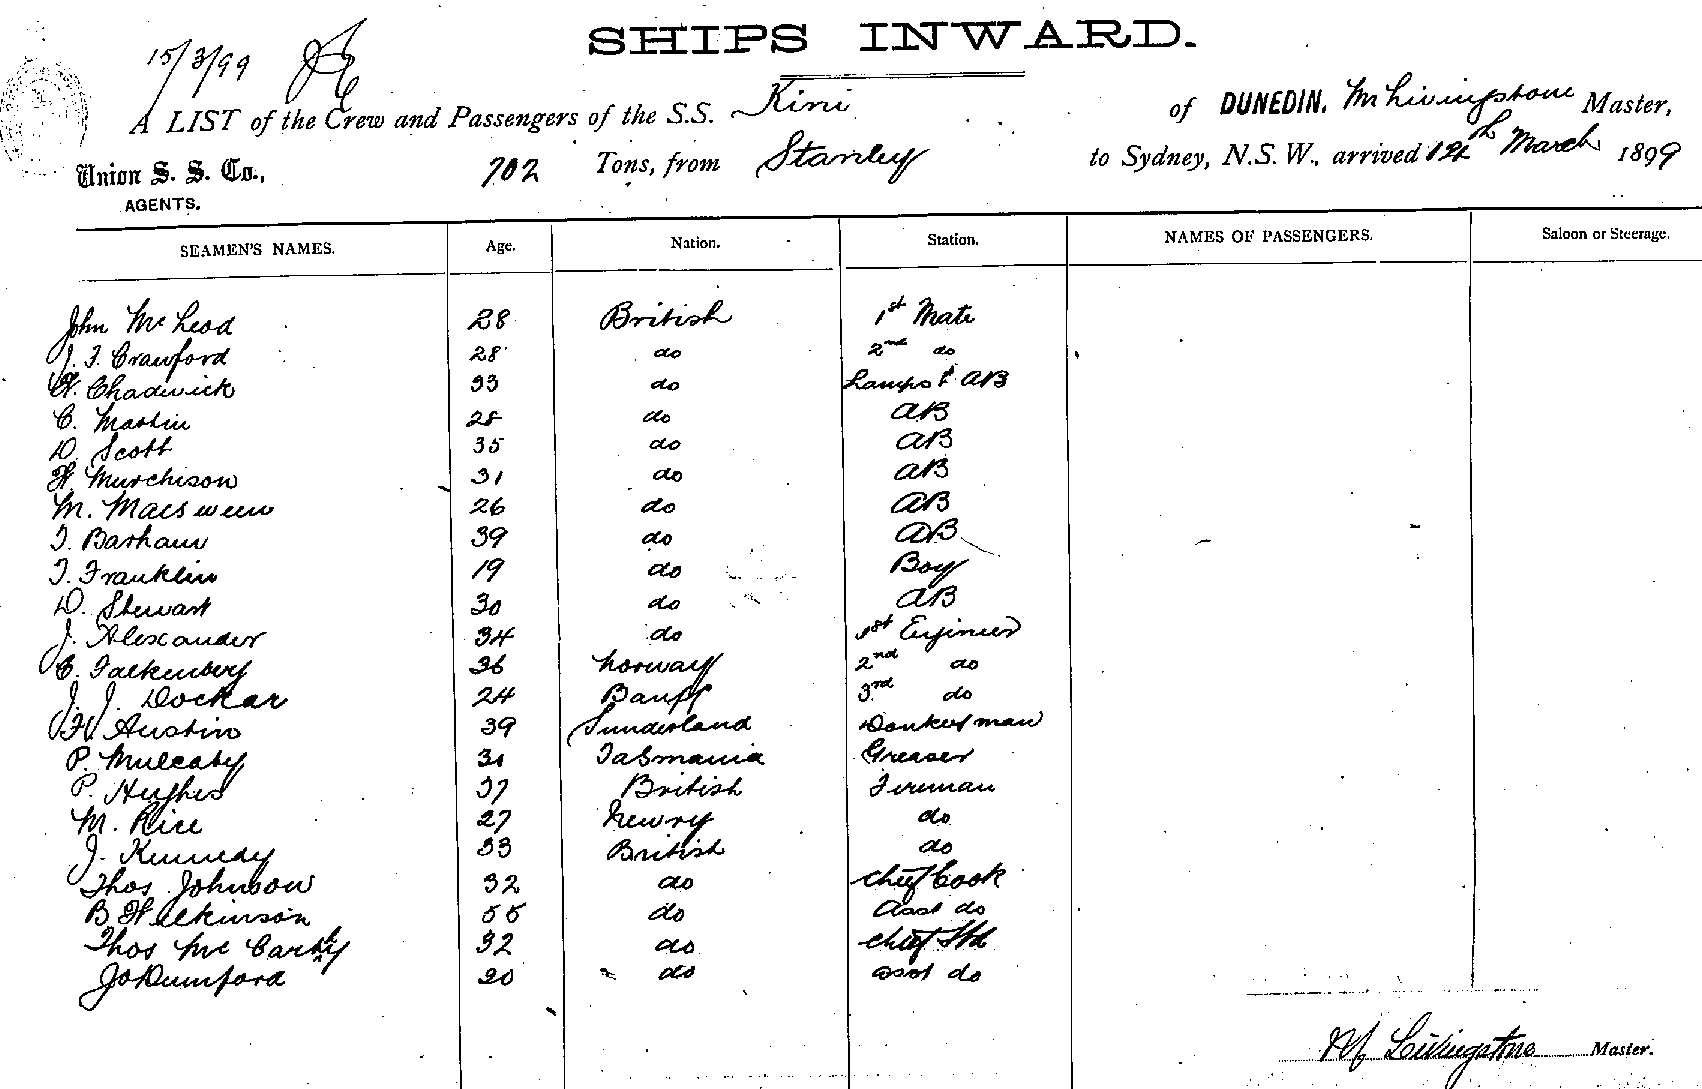 SHIPS INWARD.
15/3/99
A LIST of the Crew and Passengers of the S.S. Kini of DUNEDIN, M Livingstone Master,
Union S. S. Co., AGENTS. 702 Tons, from Stanley to Sydney, N.S.W., arrived 12th March 1899
SEAMEN'S NAMES. Age. Nation. Station. NAMES OF PASSENGERS. Saloon or Steerage.
John McLeod 28 British 1st Mate
J. F. Crawford 28 do 2nd do
Chadwick 33 do Lamps & AB
C. Martin 28 do AB
D. Scott 35 do AB
H. Murchison 31 do AB
M. Macsween 26 do AB
T. Barham 39 do AB
T. Franklin 19 do Boy
D. Stewart 30 do AB
J. Alexander 34 do 1st Engineer
C. Falkenberg 36 Norway 2nd do
J. J. Dockar 24 Banff 3rd do
W. Austin 39 Sunderland Donkeyman
P. Mulcahy 31 Tasmania Greaser
P. Hughes 37 British Fireman
M. Rice 27 Newry do
J. Kennedy 33 British do
Thos Johnson 32 do Chief Cook
B Wilkinson 55 do Asst do
Thos McCarthy 32 do Chief Std
Jo Dumford 20 do asst do
M Livingstone Master.